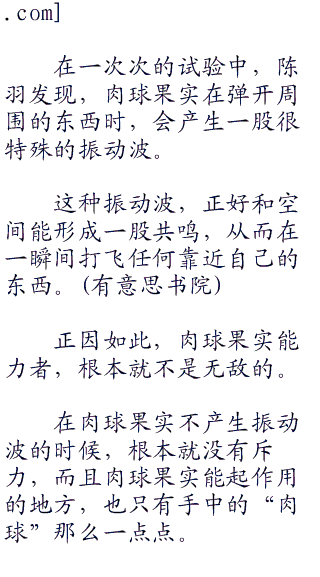 .com]
在一次次的试验中，陈
羽发现，肉球果实在弹开周
围的东西时，会产生一股很
特殊的振动波。
这种振动波，正好和空
间能形成一股共鸣，从而在
一瞬间打飞任何靠近自己的
东西。(有意思书院)
正因如此，肉球果实能
力者，根本就不是无敌的。
在肉球果实不产生振动
波的时候，根本就没有斥
力，而且肉球果实能起作用
的地方，也只有手中的“肉
球”那么一点点。